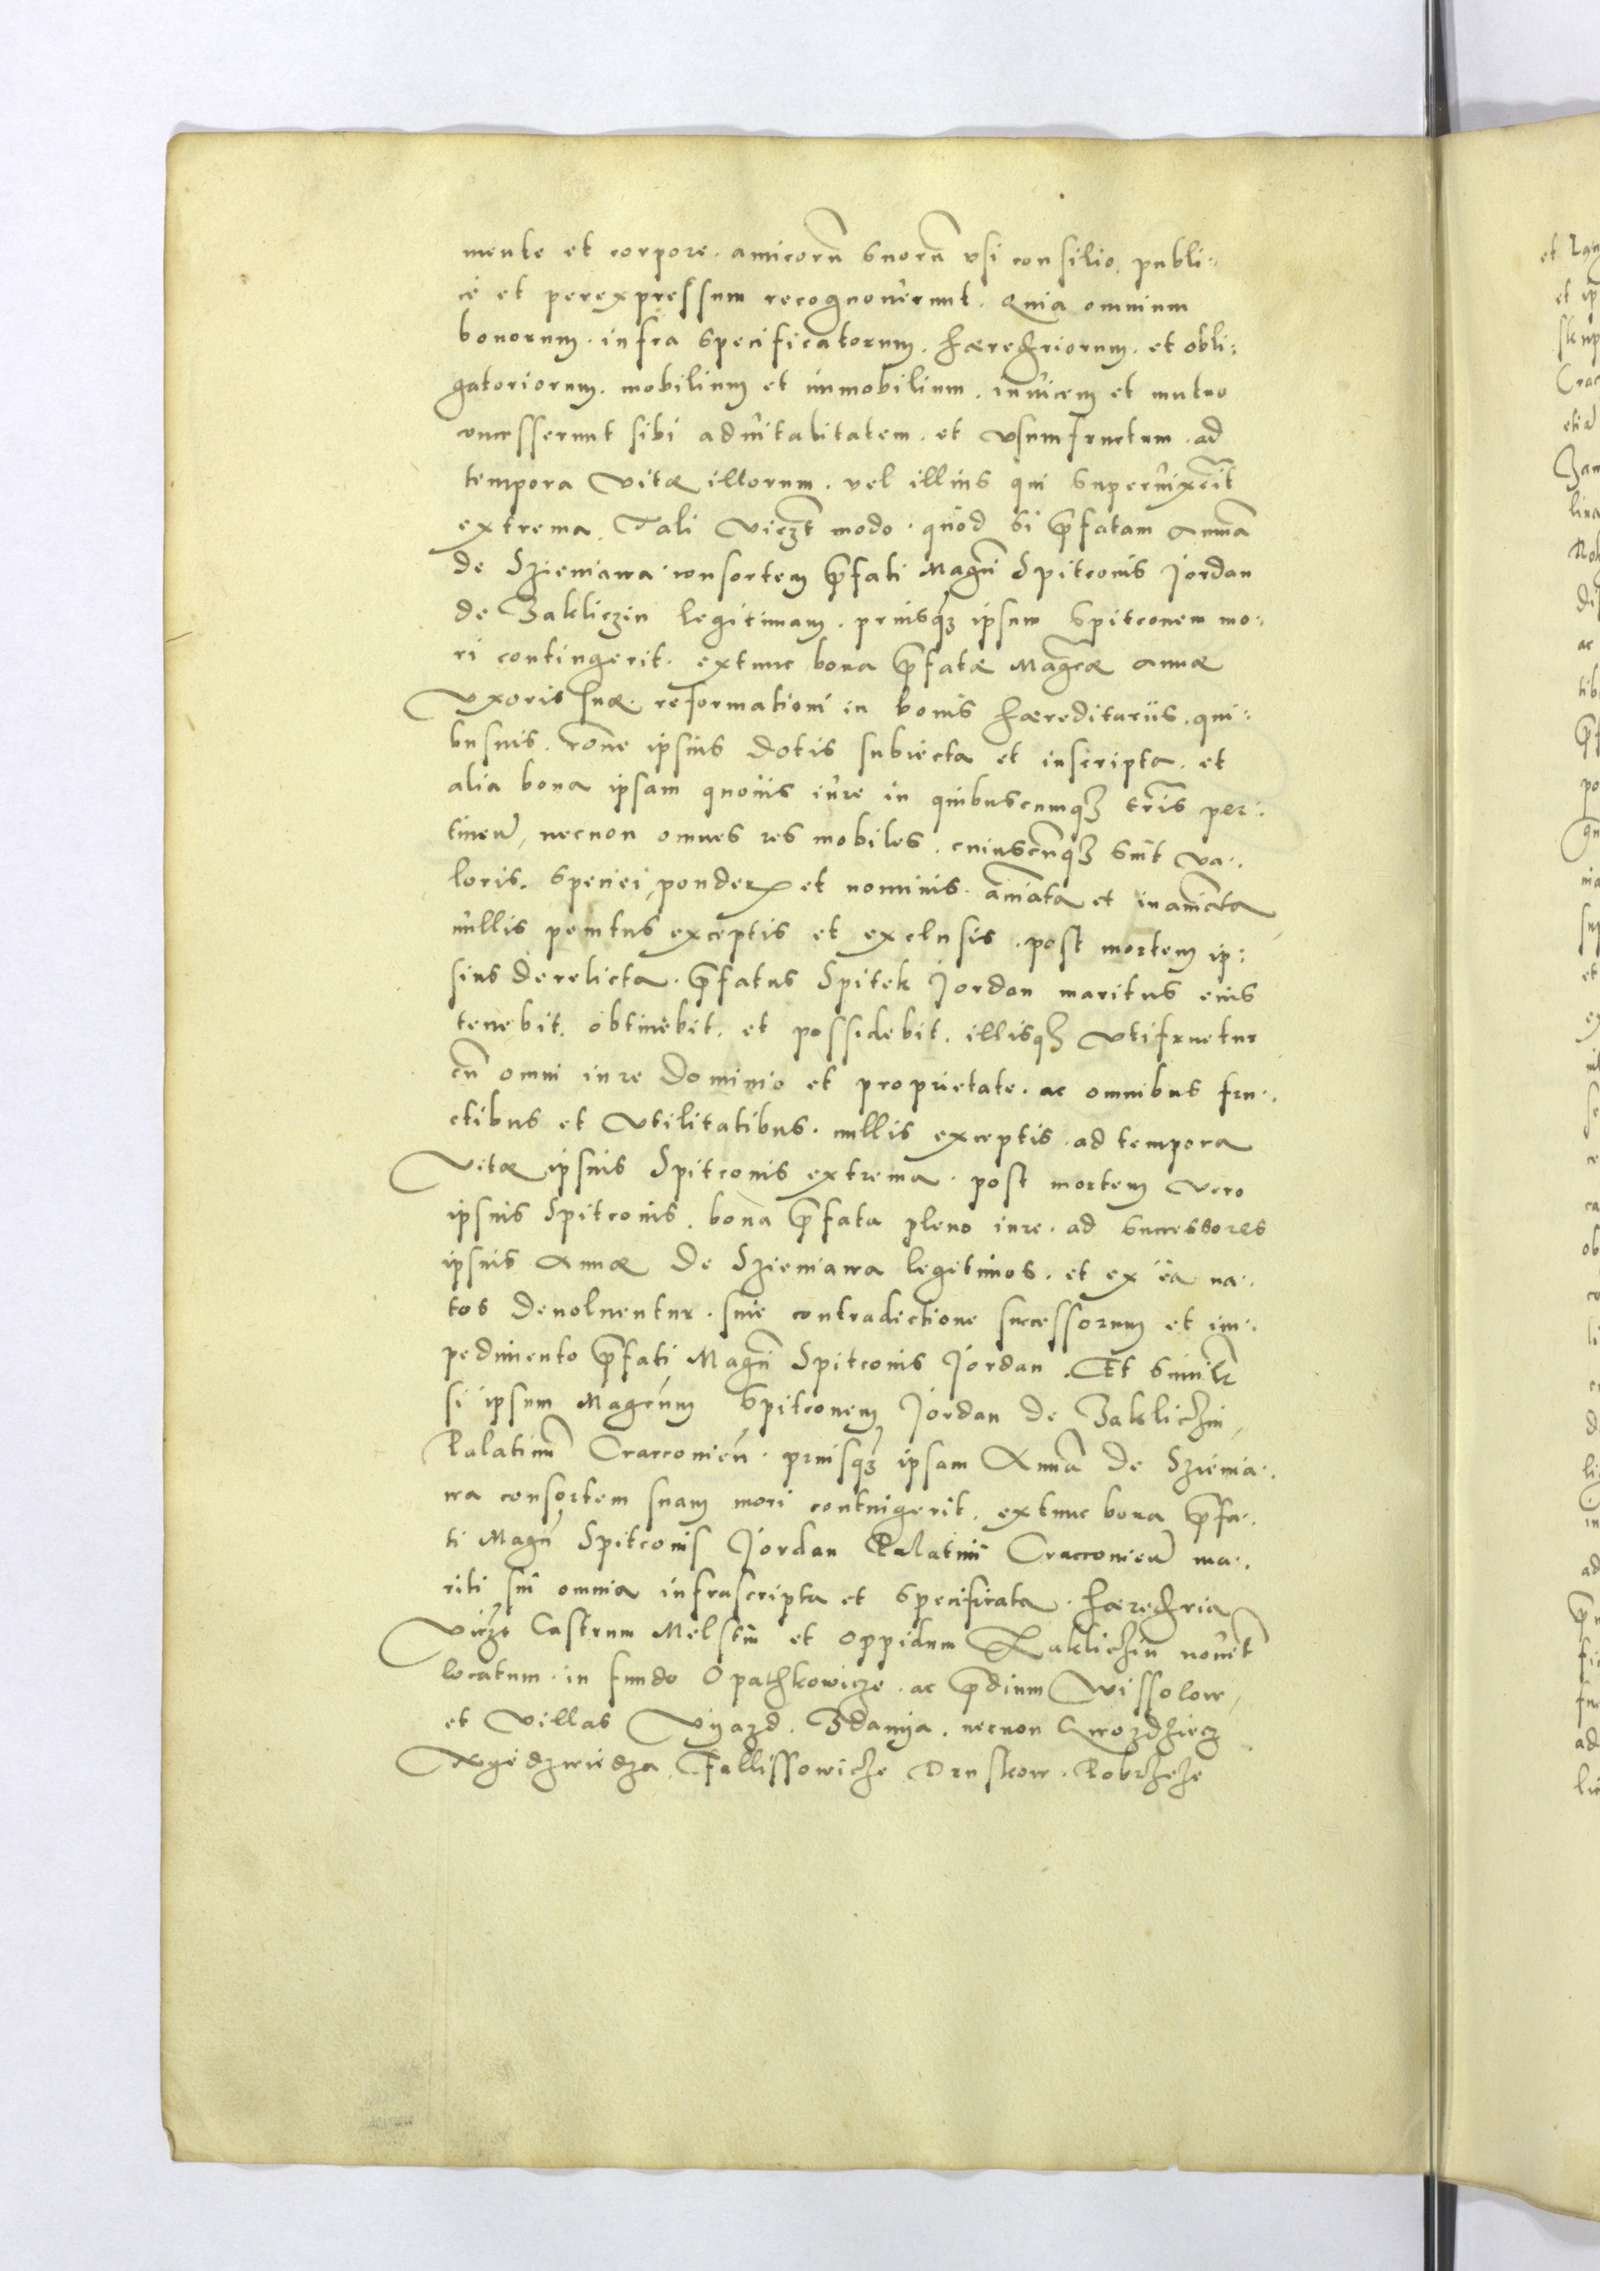 mente et corpore. amicorũ suorũ vsi consilio, publi:
cè et perexpressum recognouerunt. Quia omnium
bonorum. infra specificatorum. hæredriorum. et obli:
gatoriorum. mobilium et immobilium. inuicem et mutuo
concesserunt sibi aduitalitatem. et vsumfructum. ad
tempora vitæ illorum. vel illius qui superuixerit
extrema. Tali viczt modo. quod si p̃fatam Annã
de Szieniawa consortem p̃fati Magci Spitconis Jordan
de Zakliczin legitimam. priusq̃ ipsum Spitconem mo:
ri contingerit. extunc bona p̃fatæ Magcæ Annæ
vxoris suæ. reformationi in bonis hæreditariis. qui:
busuis. rõne ipsius dotis subiecta et inscripta. et
alia bona ipsam quouis iure in quibuscumq3 terris per:
tineñ, necnon omnes res mobiles. cuiuscũq3 sint va:
loris. speciei, ponderis et nominis. aĩata et inaĩata
nullis penitus exceptis et exclusis. post mortem ip:
sius derelicta. p̃fatus Spitek Jordan maritus eius
tenebit. obtinebit. et possidebit. illisq3 vtifruetur
cũ omni iure dominio et proprietate. ac omnibus fru:
ctibus et vtilitatibus. nullis exceptis. ad tempora
vitæ ipsius Spitconis extrema. post mortem vero
ipsius Spitconis. bona p̃fata pleno iure. ad successores
ipsius Annæ de Szieniawa legitimos. et ex ea na:
tos deuoluentur. sine contradictione successorum et im:
pedimento p̃fati Magci Spitconis Jordan. Et similr
si ipsum Magcum Spitconem Jordan de Zaklichin
Palatinũ Cracconieñ. priusq̃ ipsam Annã de Szienia:
wa consortem suam mori contingerit. extunc bona p̃fa:
ti Magci Spitconis Jordan Palatini Cracconieñ ma:
riti sui omnia infrascripta et specificata. hæredria
viczt Castrum Melstin et oppidum Zaklichin nouitr
locatum. in fundo Opathkowicze. ac p̃dium Wissolow
et villas Vyazd. Zdamya. necnon Gwozdziecz
Fallissowicze Druskow.